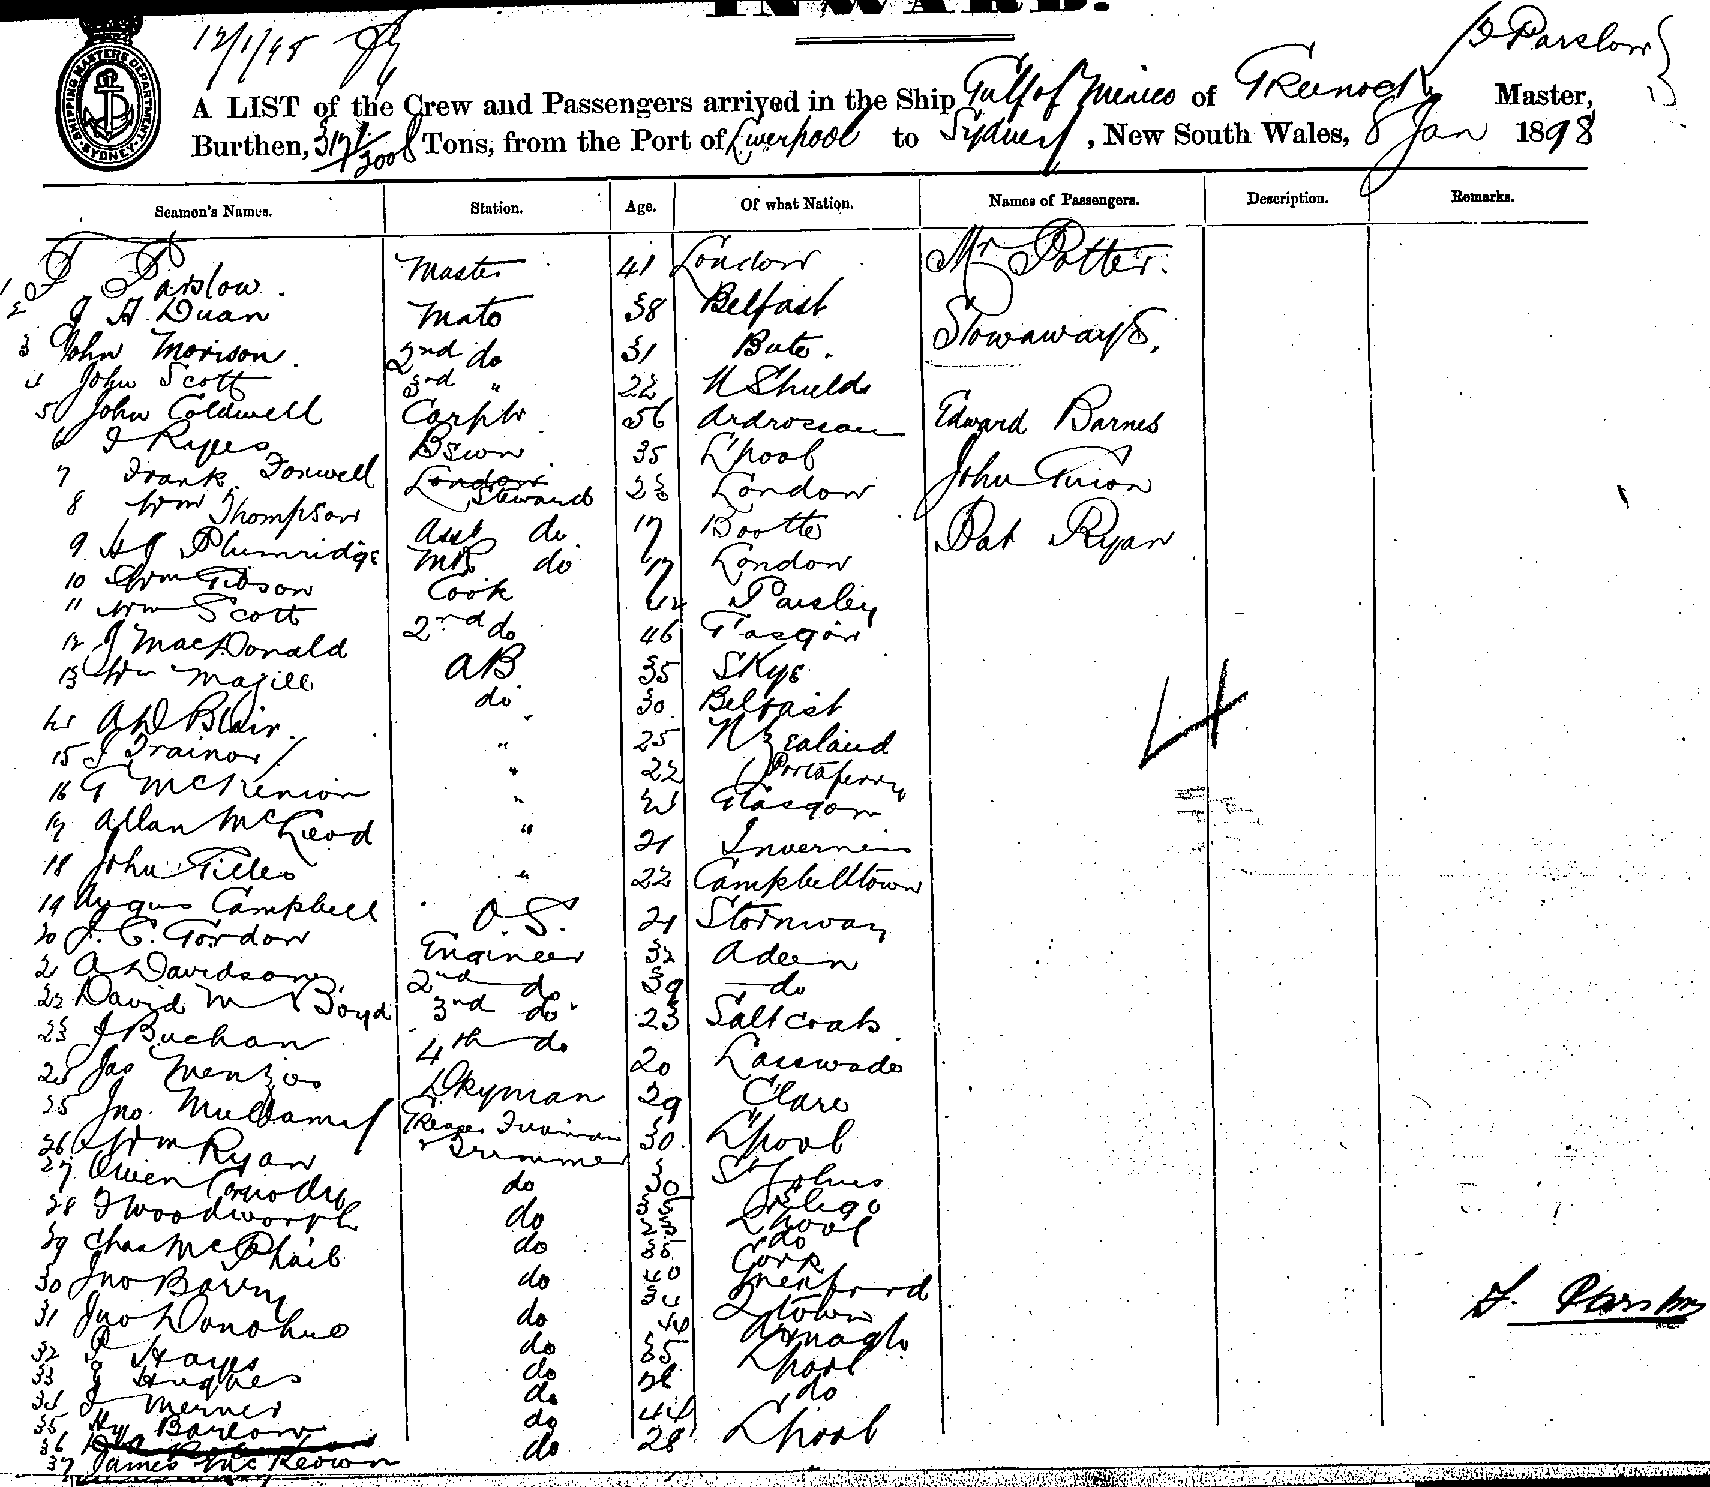 INWARD.
12/1/98
F Parslow
SHIPPING MASTERS DEPARTMENT SYDNEY
A LIST of the Crew and Passengers arrived in the Ship Gulf of Mexico of Greenock Master,
Burthen, Tons, from the Port of Liverpool to Sydney, New South Wales, 8 Jan 1898
Seamen's Names. Station. Age. Of what Nation. Names of Passengers. Description. Remarks.
1 F Parslow. Master 41 London Mr Potter.
2 J H Duan Mate 38 Belfast
3 John Morison. 2nd do 31 Bute. Stowaways.
4 John Scott 3rd " 22 N Shields
5 John Coldwell Carptr 56 Ardrossan Edward Barnes
6 Bswn 35 L'pool
7 Frank Fonwell Steward 23 London John
8 Wm Thompson Asst do 17 Bootle Pat Ryan
9 H J Plumridge do 17 London
10 Wm Gibson Cook Paisley
11 Wm Scott 2nd do 46 Glasgow
12 J MacDonald AB 35 Skye
13 Wm Magill do 30 Belfast
14 A D Blair. " 25 N Zealand
15 J Trainor " 22 Portaferry
16 G McKenion " 21 Glasgow
17 Allan McLeod " 21 Inverness
18 John Gilles " 22 Campbelltown
19 Angus Campbell O.S. 21 Stornway
20 J. C. Gordon Engineer 32 Adeen
21 A Davidson 2nd do 39 do
22 David M Boyd 3rd do 23 Saltcoats
23 J Buchan 4th do 20 Lasswade
24 Jas Menzies Dkyman 29 Clare
25 Jno. Fireman & Trimmer 30 L'pool
26 Wm Ryan do 30 St Johns
27 Owen do 35 Sligo
28 J Woodworth do L'pool
29 Chas McPhail do 35 do
30 Jno Barry do 40 Cork
31 Jno Donohue do 34
32 Hayes do Qtown
33 J Hughes do 35 Armagh
34 J Merner do L'pool
35 Hy Barlow do 44 do
36
37 James McKeown do 28 L'pool
4
F. Parslow